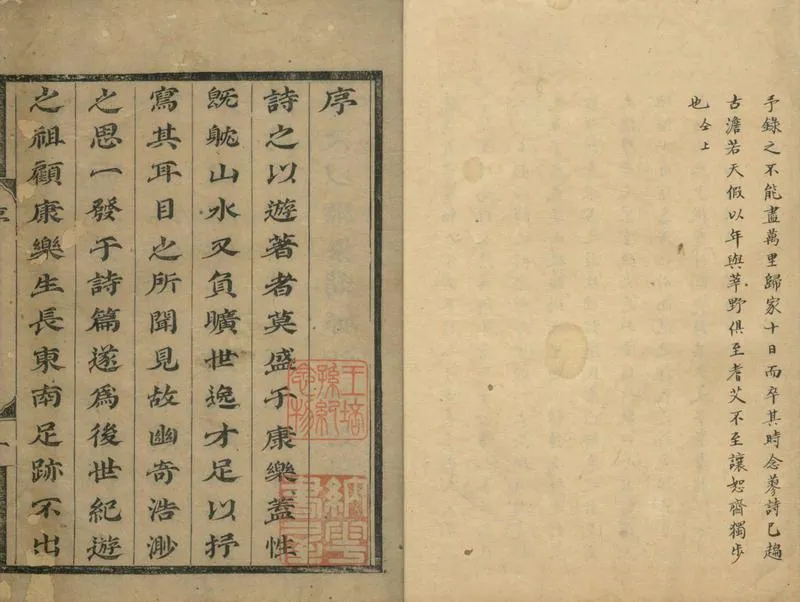 予錄之不能盡萬里歸家十日而卒其時念蓼詩已趨
古澹若天假以年與莘野俱至耆艾不至讓恕齋獨步
也仝上
序
詩之以遊著者莫盛于康樂蓋性
既躭山水又負曠世逸才足以抒
寫其耳目之所聞見故幽奇浩渺
之思一發于詩篇遂為後世紀遊
之祖顧康樂生長東南足跡不出